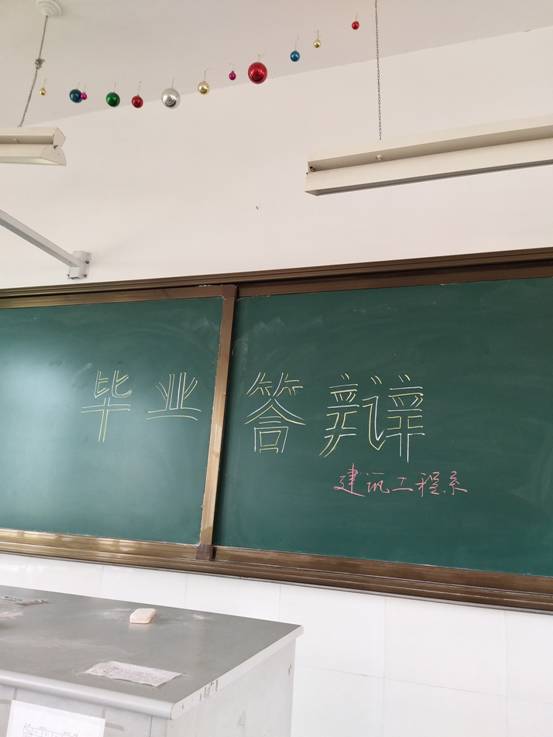 毕业答辩
建筑工程系